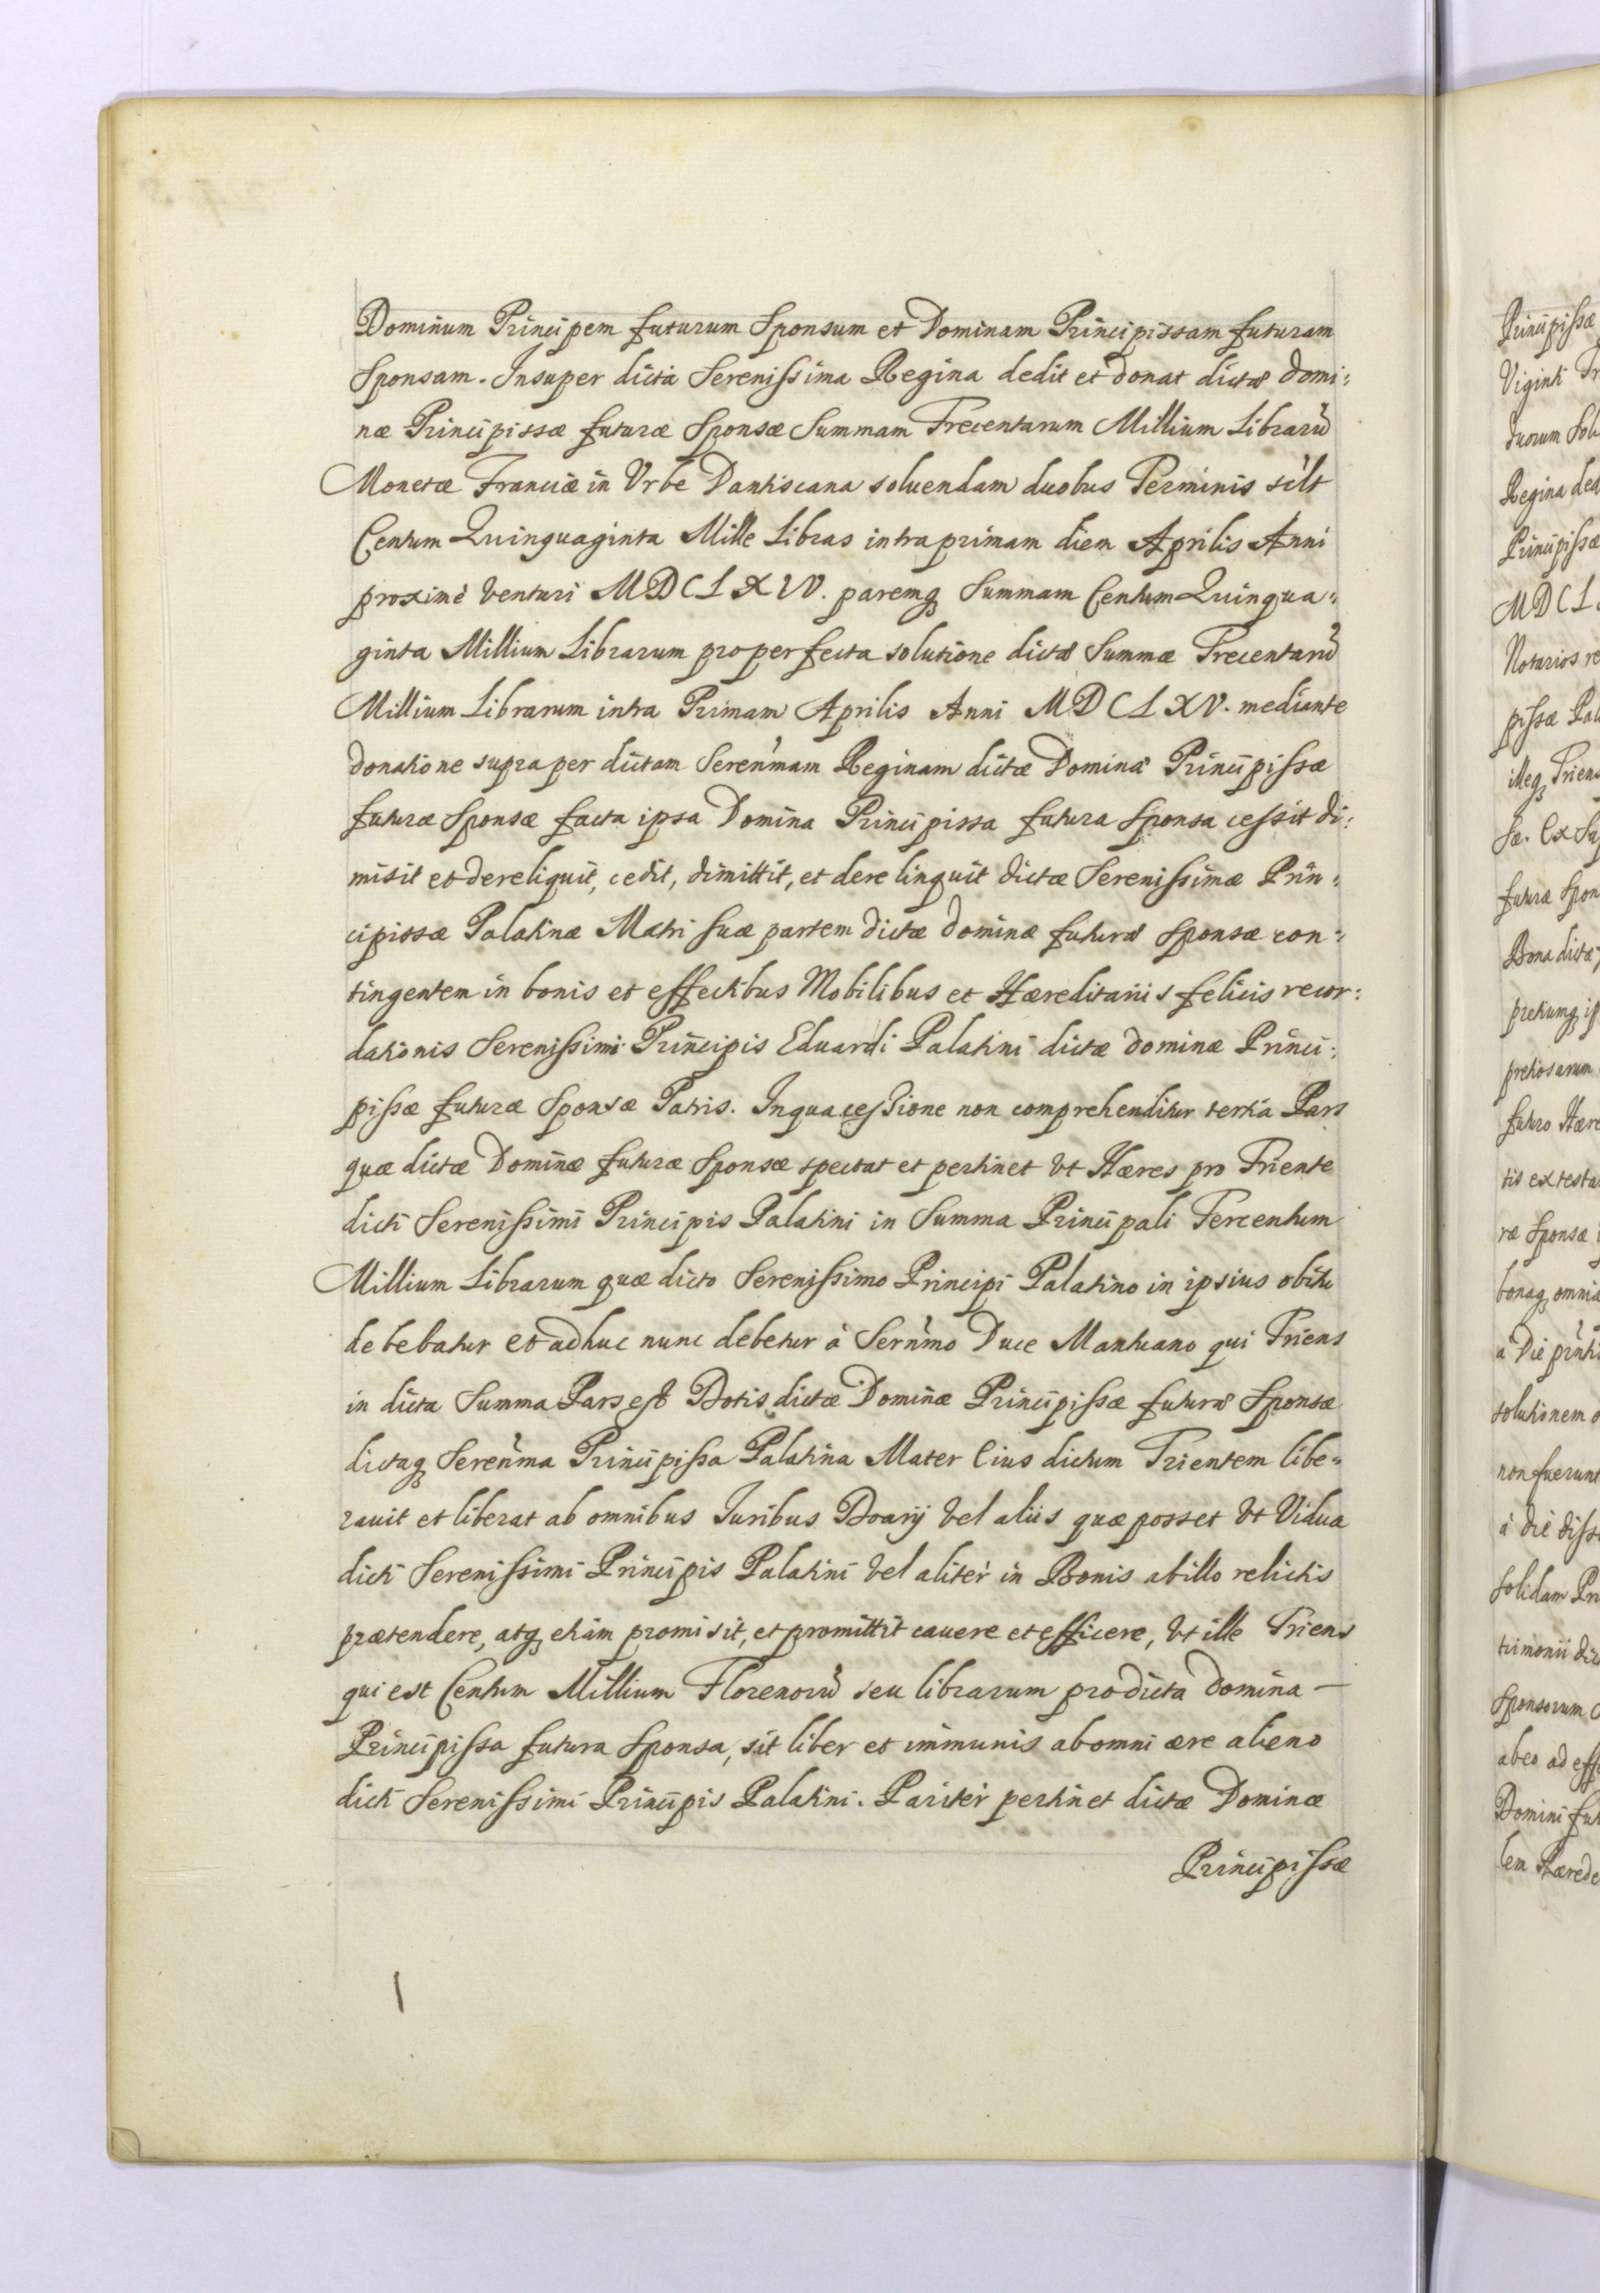 Dominum Principem futurum Sponsum et Dominam Principissam futuram
Sponsam. Insuper dicta Serenissima Regina dedit et donat dictæ Domi:
næ Principissæ futuræ Sponsæ Summam Trecentarum Millium Librarũ
Monetæ Franciæ in Vrbe Dantiscana soluendam duobus Terminis silt
Centum Quinquaginta Mille Libras intra primam diem Aprilis Anni
proximè venturi MDCLXIV. paremq; Summam Centum Quinqua:
ginta Millium Librarum pro perfecta solutione dictæ Summæ Trecentarũ
Millium Librarum intra Primam Aprilis Anni MDCLXV. mediante
donatione supra per dictam Seren̄mam Reginam dictæ Dominæ Principissæ
futuræ Sponsæ facta ipsa Domina Principissa futura Sponsa cessit di:
misit et dereliquit, cedit, dimittit, et derelinquit dictæ Serenissimæ Prin:
cipissæ Palatinæ Matri suæ partem dictæ Dominæ futuræ Sponsæ con:
tingentem in bonis et effectibus Mobilibus et Hæreditariis felicis recor:
dationis Serenissimi Principis Eduardi Palatini dictæ Dominæ Princi:
pissæ futuræ Sponsæ Patris. In qua cessione non comprehenditur tertia Pars
quæ dictæ Dominæ futuræ Sponsæ spectat et pertinet vt Hæres pro Triente
dicti Serenissimi Principis Palatini in Summa Principali Tercentum
Millium Librarum quæ dicto Serenissimo Principi Palatino in ipsius obitu
debebatur et adhuc nunc debetur à Sern̄mo Duce Mantuano qui Triens
in dicta Summa Pars est Dotis dictæ Dominæ Principissæ futuræ Sponsæ
dictaq; Seren̄ma Principissa Palatina Mater Eius dictum Trientem libe:
rauit et liberat ab omnibus Iuribus Doarij vel aliis quæ posset vt Vidua
dicti Serenissimi Principis Palatini vel aliter in Bonis ab illo relictis
prætendere, atq; etiam promisit, et promittit cauere et efficere, vt ille Triens
qui est Centum Millium Florenorũ seu librarum pro dicta Domina —
Principissa futura Sponsa, sit liber et immunis ab omni ære alieno
dicti Serenissimi Principis Palatini. Pariter pertinet dictæ Dominæ
Principissæ
Principissæ
Viginti
duorum
Regina
Principissæ
MDCL
Notarios
pissæ
illeq;
sæ. Ex
futuræ
Bona dictæ
pretiosarum
futuro
tis ex
ræ Sponsæ
bonaq; omnia
à Die
solutionem
non fuerunt
à die
solidam
trimonii
Sponsorum
ab eo ad
Domini